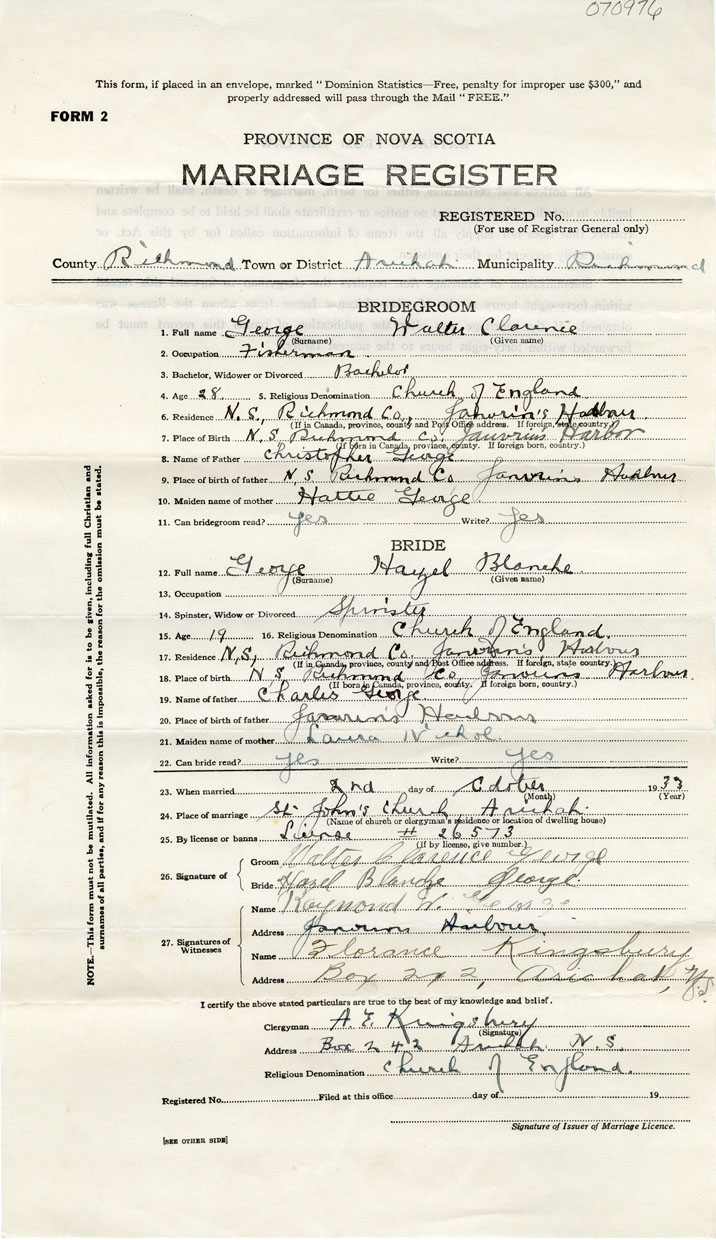 070976
This form, if placed in an envelope, marked "Dominion Statistics—Free, penalty for improper use $300," and
properly addressed will pass through the Mail "FREE."
FORM 2
PROVINCE OF NOVA SCOTIA
MARRIAGE REGISTER
REGISTERED No.
(For use of Registrar General only)
County Richmond Town or District Arichat Municipality Richmond
BRIDEGROOM
1. Full name George Walter Clarence
(Surname) (Given name)
2. Occupation Fisherman
3. Bachelor, Widower or Divorced Bachelor
4. Age 28 5. Religious Denomination Church of England
6. Residence N.S., Richmond Co., Janvrin's Harbour
(If in Canada, province, county and Post Office address. If foreign, state country.)
7. Place of Birth N.S. Richmond Co, Janvrins Harbor
(If born in Canada, province, county. If foreign born, country.)
8. Name of Father Christopher George
9. Place of birth of father N.S Richmond Co Janvrins Harbour
10. Maiden name of mother Hattie George
11. Can bridegroom read? yes Write? yes
BRIDE
12. Full name George Hazel Blanche
(Surname) (Given name)
13. Occupation
14. Spinster, Widow or Divorced Spinster
15. Age 19 16. Religious Denomination Church of England.
17. Residence N.S, Richmond Co. Janvrins Harbour
(If in Canada, province, county and Post Office address. If foreign, state country.)
18. Place of birth N S Richmond Co Janvrins Harbour.
(If born in Canada, province, county. If foreign born, country.)
19. Name of father Charles George
20. Place of birth of father Janvrins Harbour
21. Maiden name of mother Laura Nichol
22. Can bride read? yes Write? yes
23. When married 2nd day of October 1933
(Month) (Year)
24. Place of marriage St. John's Church Arichat
(Name of church or clergyman's residence or location of dwelling house)
25. By license or banns License # 26573
(If by license, give number.)
26. Signature of
Groom Walter Clarence George
Bride Hazel Blanche George.
27. Signatures of Witnesses
Name Raymond W. George
Address Janvrins Harbour
Name Florance Kingsbury
Address Box 242, Arichat, N.S.
I certify the above stated particulars are true to the best of my knowledge and belief.
Clergyman A. E. Kingsbury
(Signature)
Address Box 242 Arichat N.S.
Religious Denomination Church of England.
Registered No. Filed at this office day of 19
Signature of Issuer of Marriage Licence.
[SEE OTHER SIDE]
NOTE.—This form must not be mutilated. All information asked for is to be given, including full Christian and
surnames of all parties, and if for any reason this is impossible, the reason for the omission must be stated.